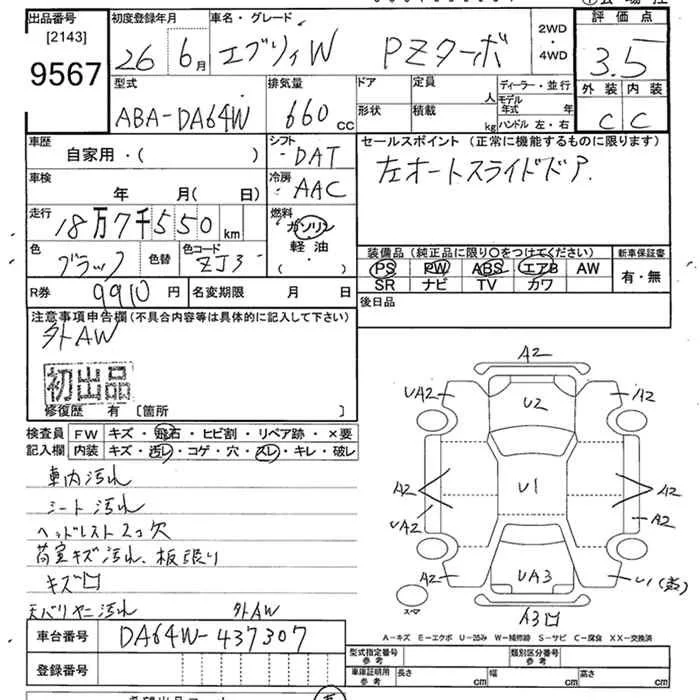 出品番号
[2143]
9567
初度登録年月
26 6月
車名・グレード
エブリィW PZターボ
2WD
・
4WD
評価点
3.5
型式
ABA-DA64W
排気量
660 CC
ドア
定員
人
形状
積載
kg
ディーラー・並行
モデル年式 年
ハンドル 左・右
外装 内装
C C
車歴
自家用・( )
シフト
DAT
セールスポイント (正常に機能するものに限ります)
左オートスライドドア.
車検
年 月( 日)
冷房
AAC
走行
18万7千550 km
燃料
ガソリン
軽油
( ・ )
色
ブラック
色替
色コード
ZJ3
装備品 (純正品に限り〇をつけてください)
PS PW ABS エアB AW
SR ナビ TV カワ
新車保証書
有・無
R券
9910 円
名変期限 月 日
後日品
注意事項申告欄(不具合内容等は具体的に記入して下さい)
外AW
初出品
修復歴 有 [箇所 ]
検査員
記入欄
FW キズ・飛石・ヒビ割・リペア跡・×要
内装 キズ・汚レ・コゲ・穴・スレ・キレ・破レ
車内汚れ
シート汚れ
ヘッドレスト2コ欠
荷室キズ汚れ、板張り
キズ凹
天バリヤニ汚れ 外AW
A2
UA2
U2
A2
A2
U1
A2
UA2
A2
A2
UA3
U1
A3凹
スペア
A-キズ E-エクボ U-凹み W-補修跡 S-サビ C-腐食 XX-交換済
車台番号
DA64W-437307
登録番号
型式指定番号
参考
類別区分番号
参考
車庫証明用
参考
長さ cm
幅 cm
高さ cm